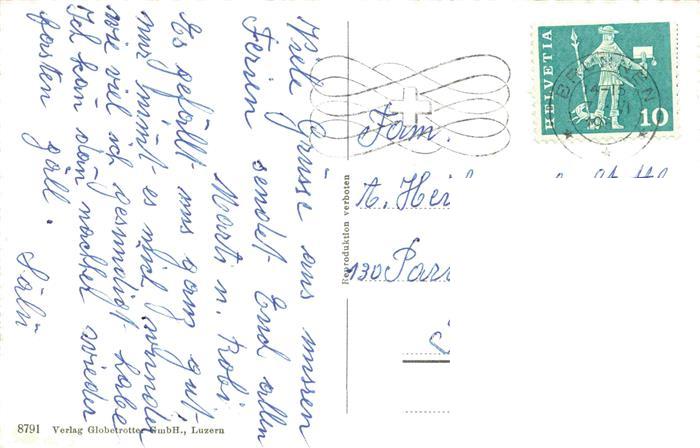 Viele Grüsse aus unsren
Ferien sendet Eud allen
Marti u. Robi
Es gefällt uns ganz gut,
nur nimt es mich wunder
wie vil ich gesundigt habe
Ich kan dan nachher wieder
fasten gäll.
HELVETIA
10
BRUNNEN
Fam.
A. Hei
130 Par
Reproduktion verboten
8791 Verlag Globetrotter GmbH., Luzern